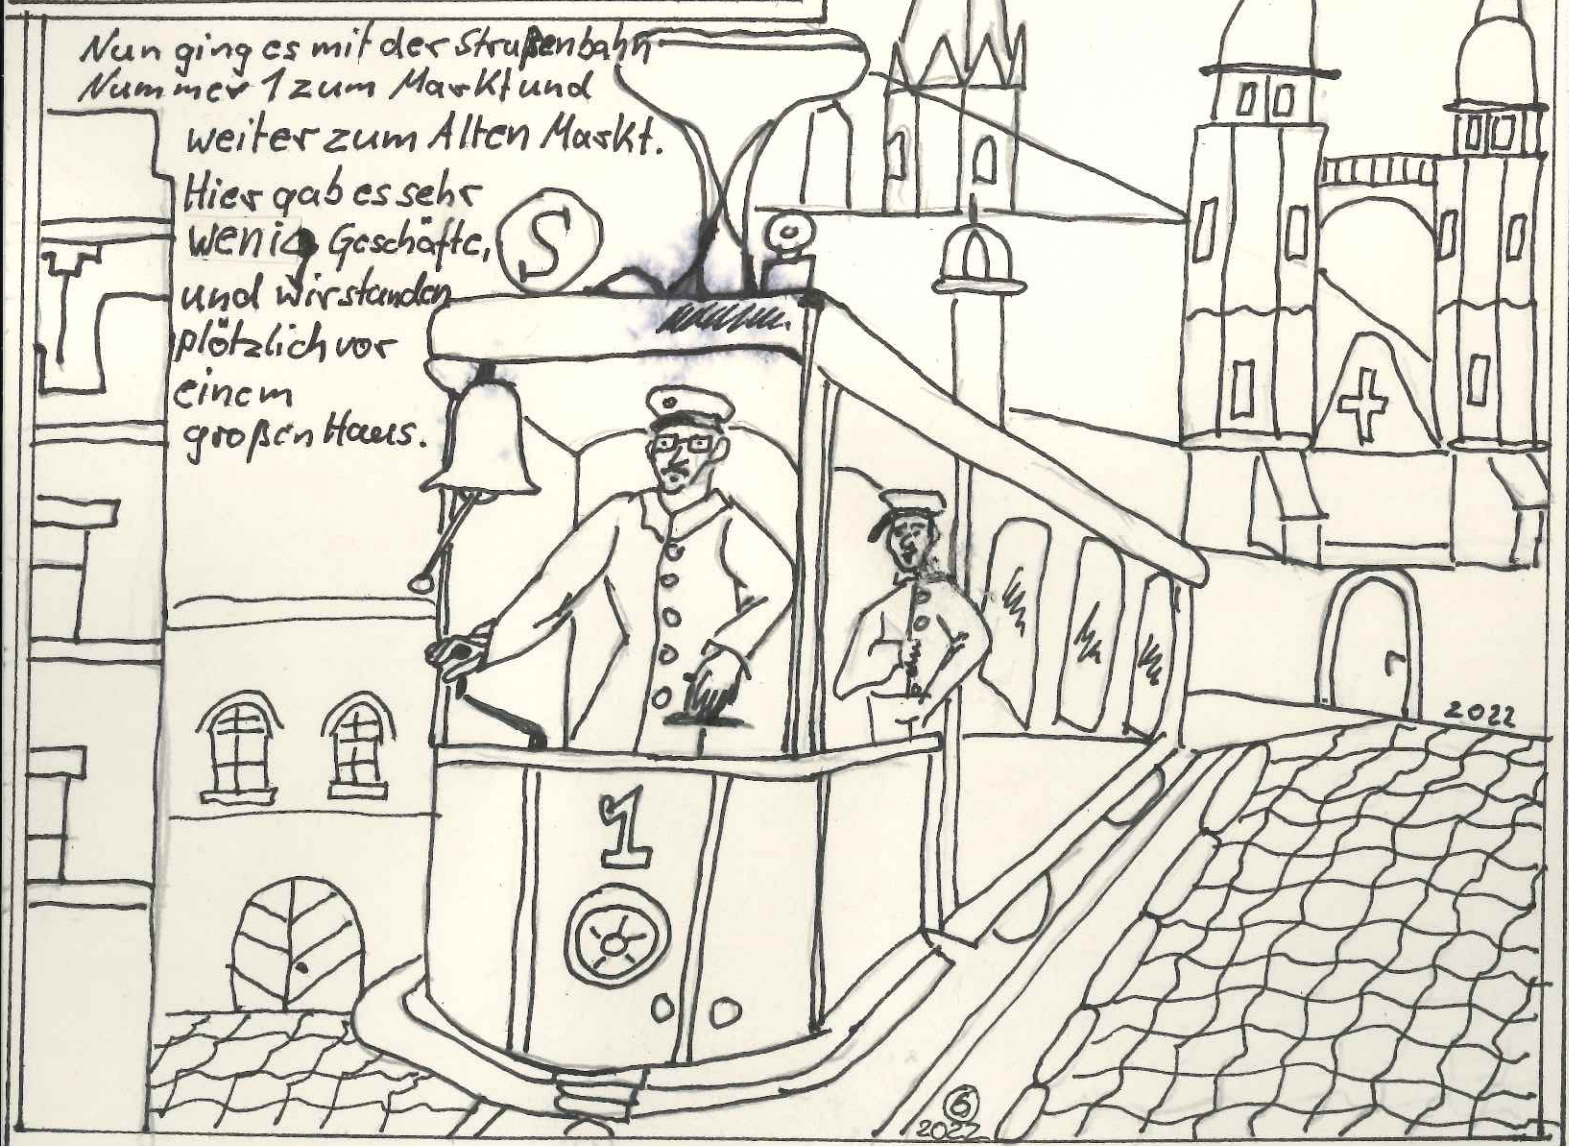 Nun ging es mit der Straßenbahn
Nummer 1 zum Markt und
weiter zum Alten Markt.
Hier gab es sehr
wenig Geschäfte,
und wir standen
plötzlich vor
einem
großen Haus.
S
1
2022
6
2022